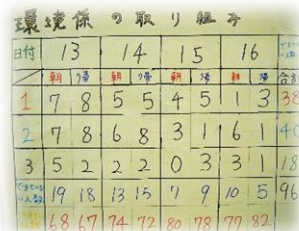 環境係の取り組み
日付 13 14 15 16
朝 夕 朝 夕 朝 夕 朝 夕 合計
1 7 8 5 5 4 5 1 3 38
2 7 8 6 8 3 1 6 1
3 5 2 2 2 0 3 3 1 18
19 18 13 15 7 9 10 5 96
68 67 74 72 80 78 77 82